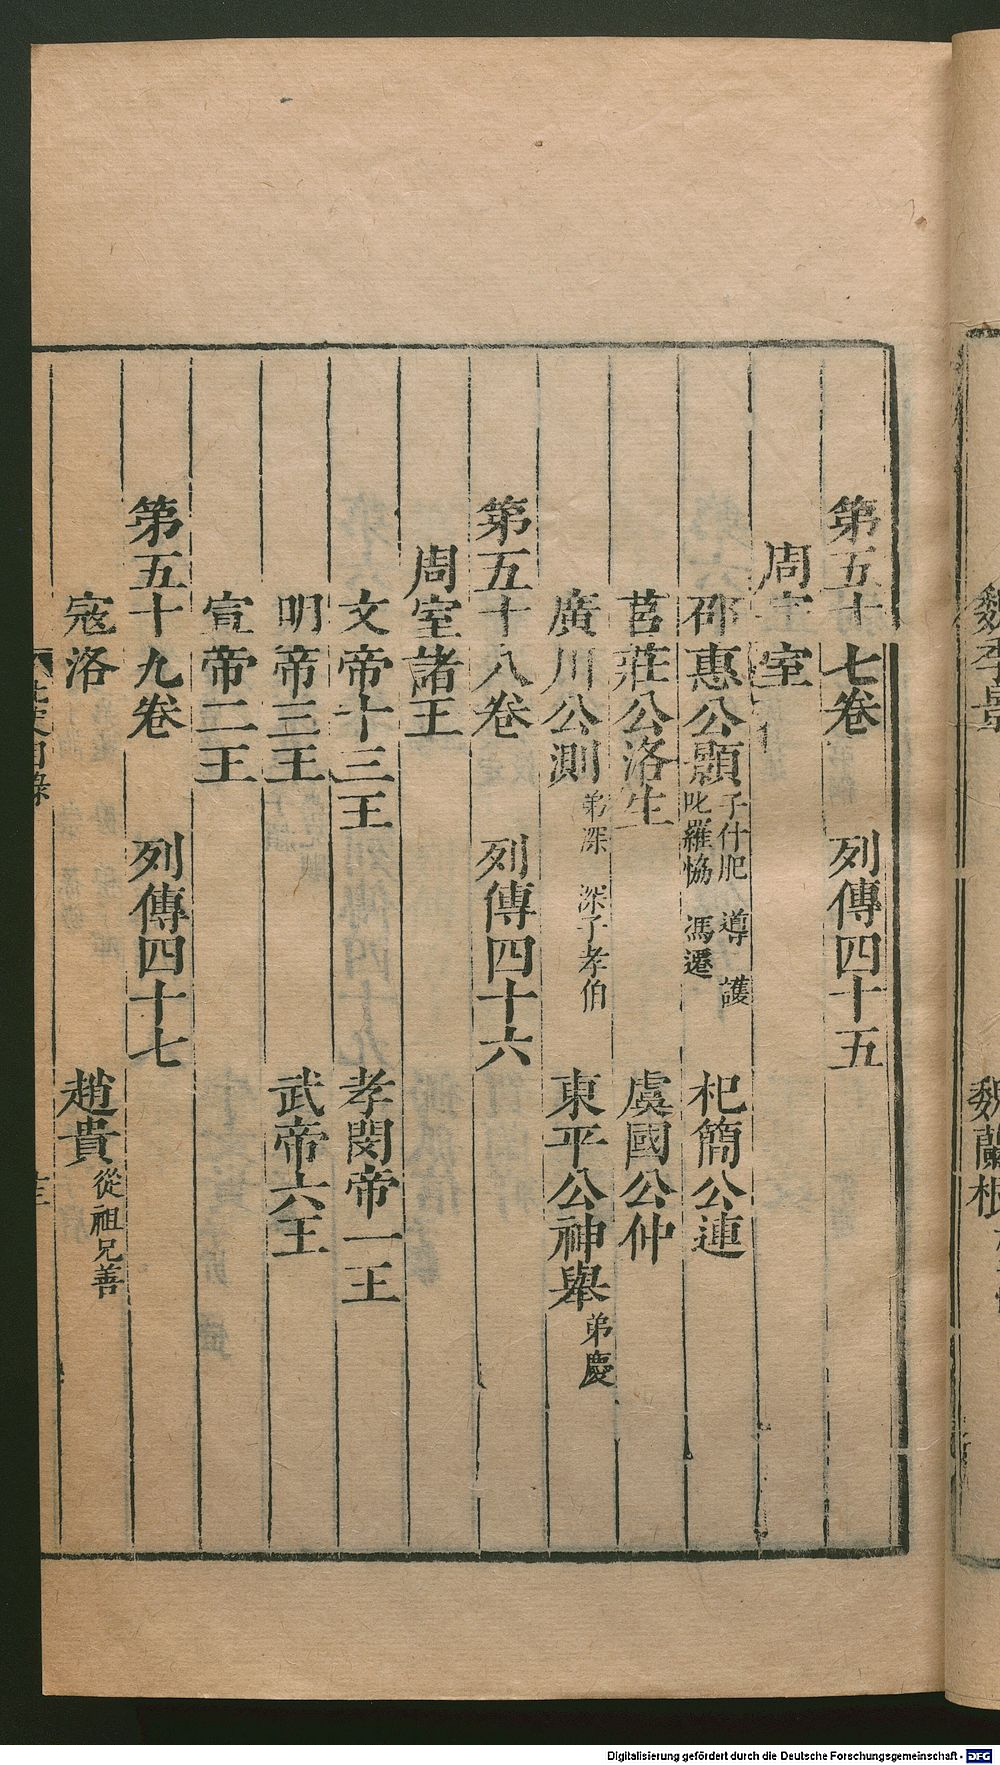 第五十七卷　列傳四十五
周宗室
邵惠公顥　子什肥　導　護　叱羅恊　馮遷　杞簡公連
莒莊公洛生　虞國公仲
廣川公測　弟深　深子孝伯　東平公神舉　弟慶
第五十八卷　列傳四十六
周室諸王
文帝十三王　孝閔帝一王
明帝三王　武帝六王
宣帝二王
第五十九卷　列傳四十七
寇洛　趙貴　從祖兄善
魏蘭根
Digitalisierung gefördert durch die Deutsche Forschungsgemeinschaft - DFG